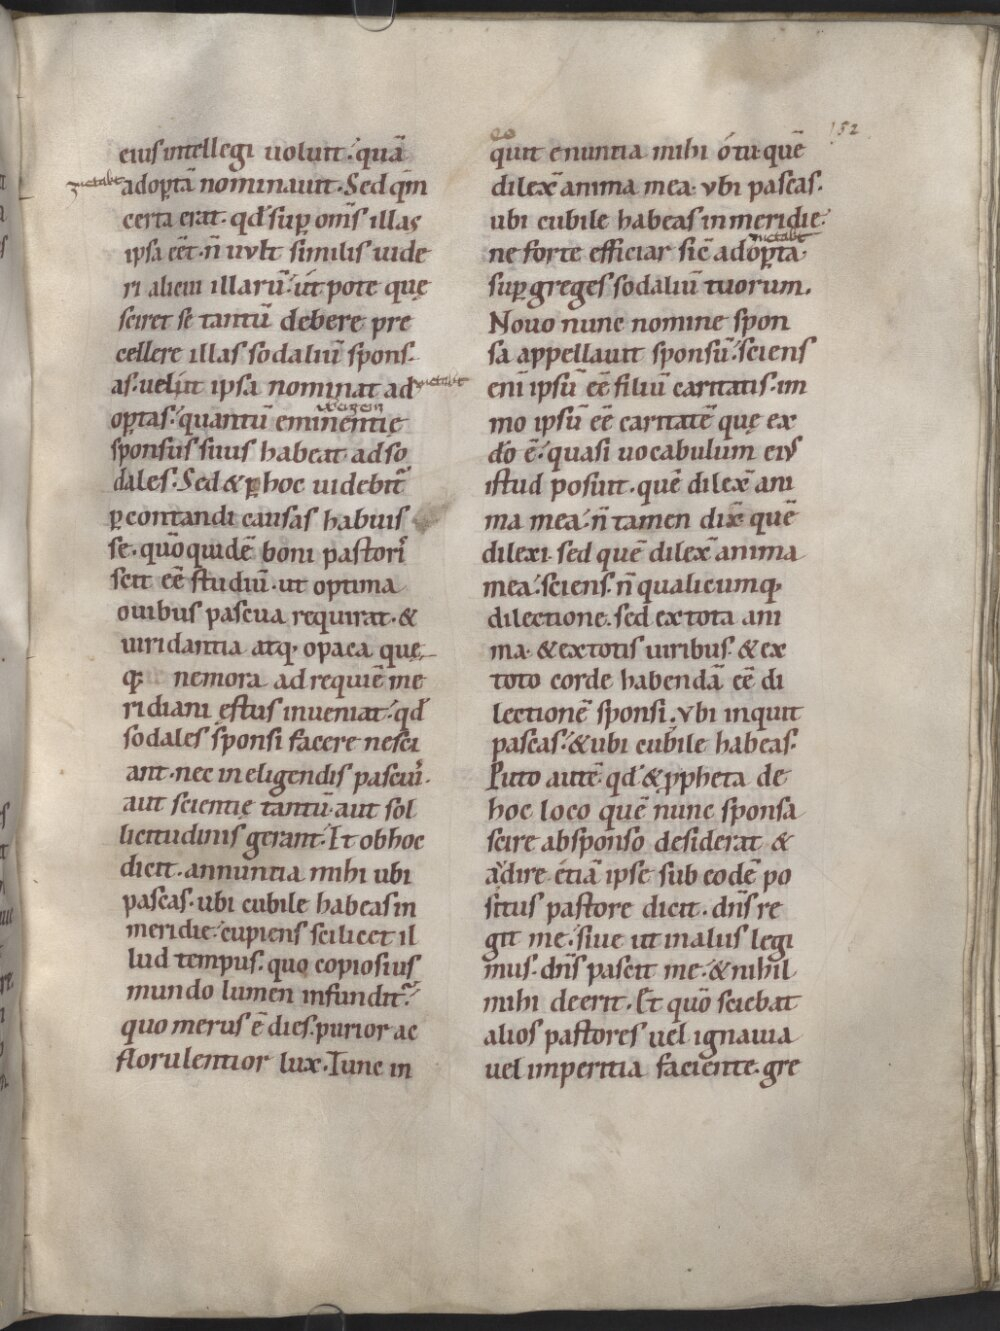 152
eius intellegi uoluit. quā
adoptā nominauit. Sed qm̄
certa erat. qd̄ sup om̄s illas
ipsa eēt. n̄ uult similis uide
ri alieni illarū. út pote quę
sciret se tantū debere pre
cellere illas sodaliū spons
as. uelut ipsa nominat ad
optas. quantū eminentię
sponsus suus habeat ad so
dales. Sed & ꝑ hoc uidebit̄
ꝑcontandi causas habuis
se. qūo quidē boni pastoris
scit eē studiū. ut optima
ouibus pascua requirat. &
uiridantia atq; opaca quę
q; nemora ad requiē me
ridiani ęstus inueniat. qd̄
sodales sponsi facere nesci
ant. nec in eligendis pascuis.
aut scientię tantū. aut sol
licitudinis gerant. Et ob hoc
dicit. annuntia mihi ubi
pascas. ubi cubile habeas in
meridie. cupiens scilicet il
lud tempus. quo copiosius
mundo lumen infundit̄.
quo merus ē dies. purior ac
florulentior lux. Tunc in
quit enuntia mihi ó tu quē
dilex̄ anima mea. vbi pascas.
ubi cubile habeas in meridie.
ne forte efficiar sic̄ adopta
sup greges sodaliū tuorum.
Nouo nunc nomine spon
sa appellauit sponsū. sciens
eni ipsū eē filiū caritatis. im
mo ipsū eē caritatē quę ex
dō ē. quasi uocabulum eius
istud posuit. quē dilex̄ ani
ma mea. n̄ tamen dix̄ quē
dilexi. sed quē dilex̄ anima
mea. sciens. n̄ qualicumq;
dilectione. sed ex tota ani
ma. & ex totis uiribus. & ex
toto corde habendā eē di
lectionē sponsi. vbi inquit
pascas. & ubi cubile habeas.
Puto autē qd̄ & ꝓpheta de
hoc loco quē nunc sponsa
scire ab sponso desiderat &
adire. etiā ipse sub eodē po
situs pastore dicit. dn̄s re
git me. siue ut in alus legi
mus. dn̄s pascit me. & nihil
mihi deerit. Et qūo sciebat
alios pastores uel ignauia
uel imperitia faciente. gre